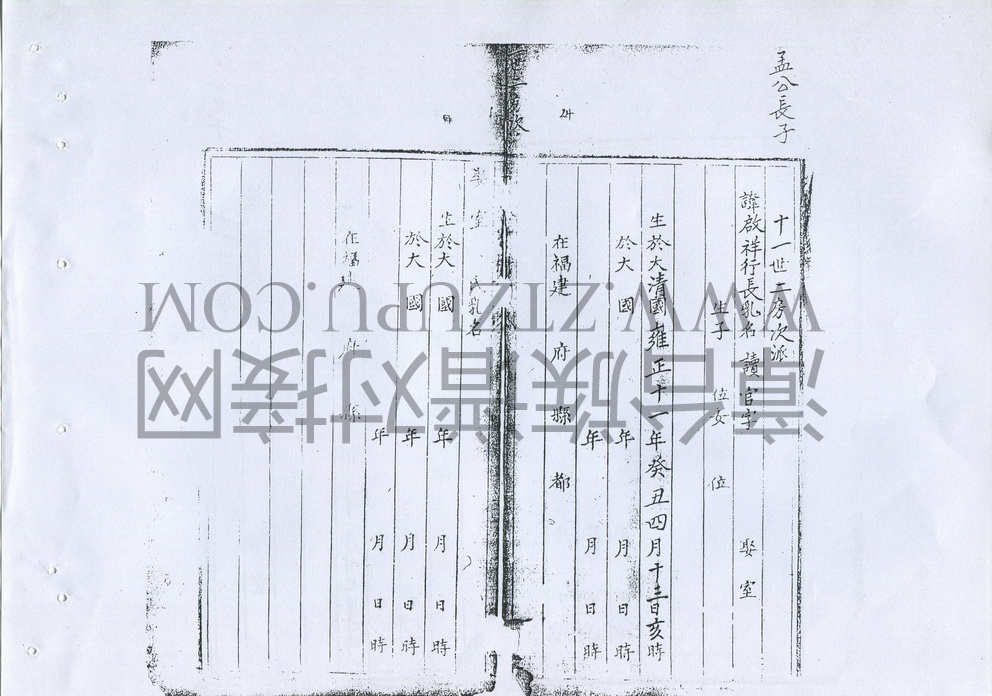 孟公長子
十一世二房次派
諱啟祥行長乳名 讀 官字 娶室
生子 位女 位
生於大清國雍正十一年癸丑四月十三日亥時
於大 國 年 月 日 時
年 月 日 時
在福建 府 縣 都
24
室 氏乳名
生於大 國 年 月 日 時
於大 國 年 月 日 時
年 月 日 時
在福建 府 縣
WWW.ZTZUPU.COM
漳台族谱对接网